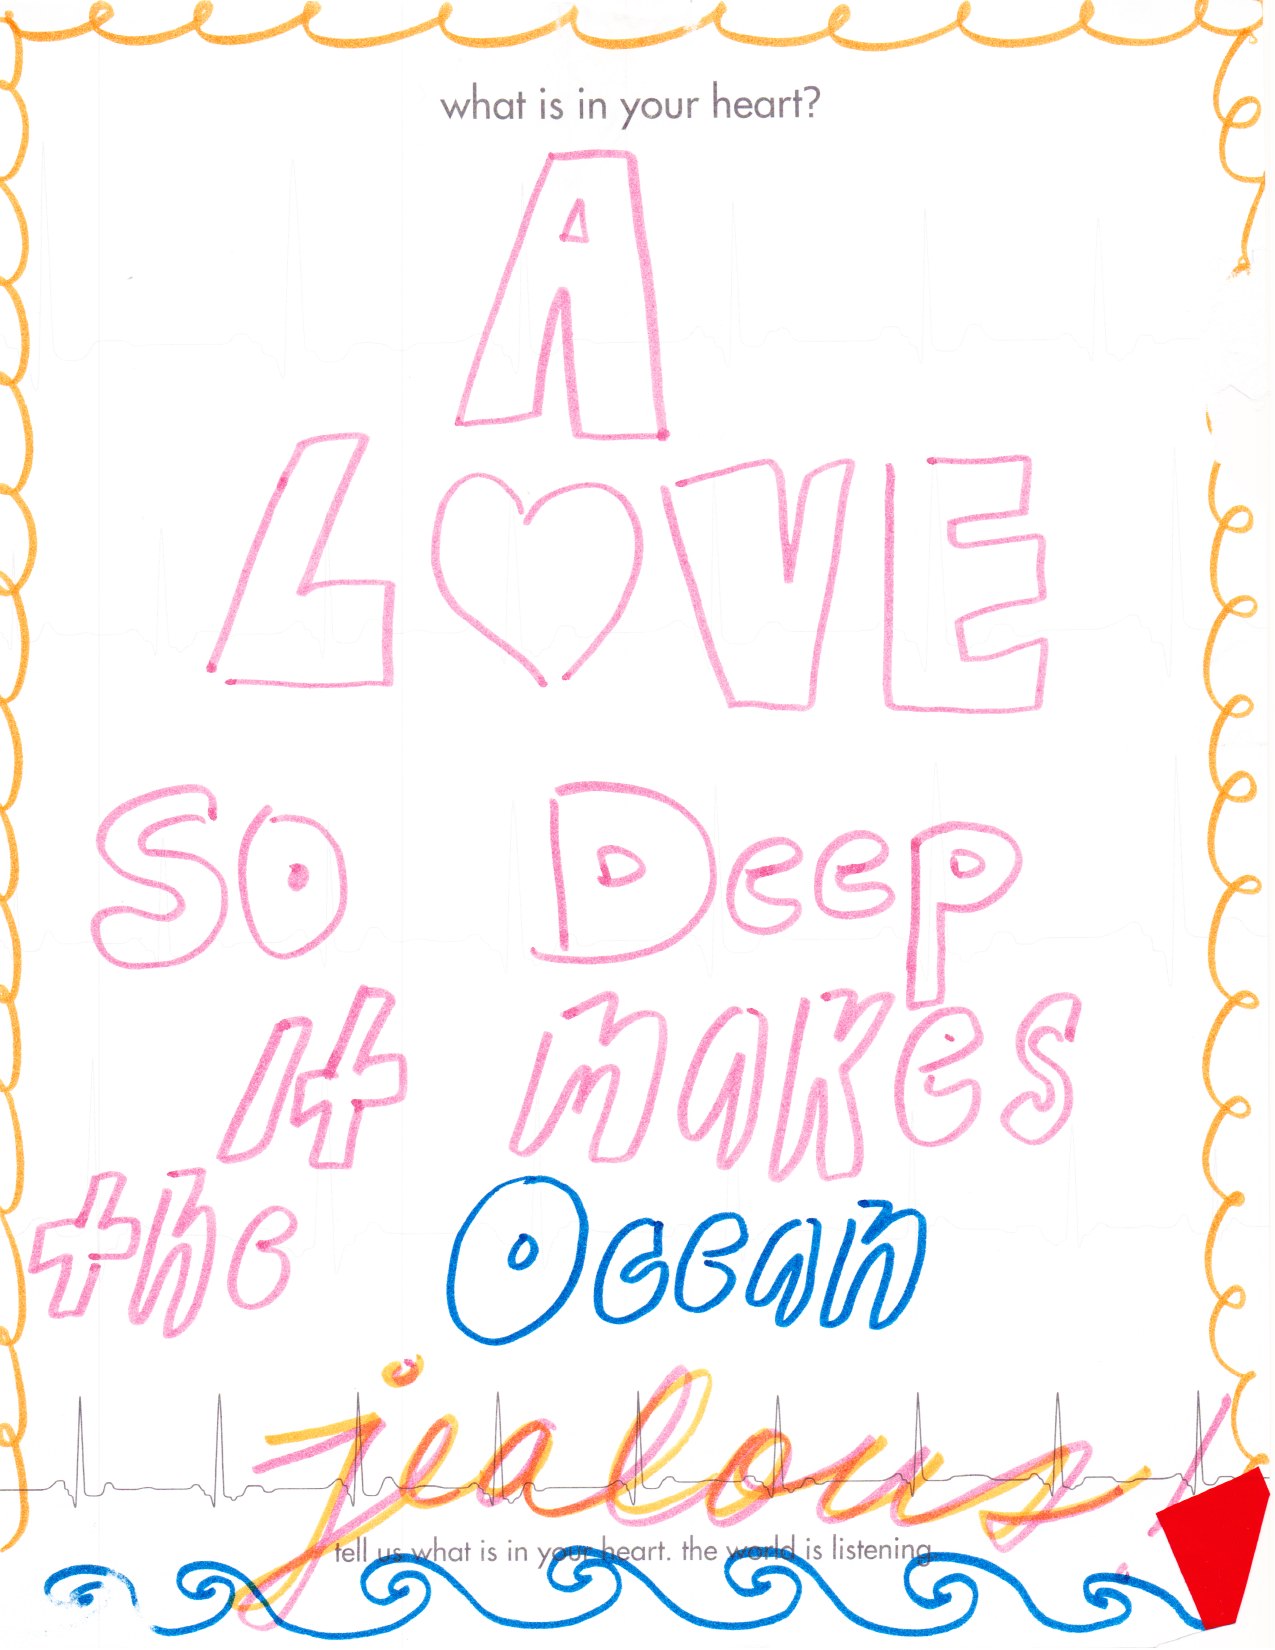 what is in your heart?
A
LOVE
So Deep
It makes
the Ocean
jealous!
tell us what is in your heart. the world is listening